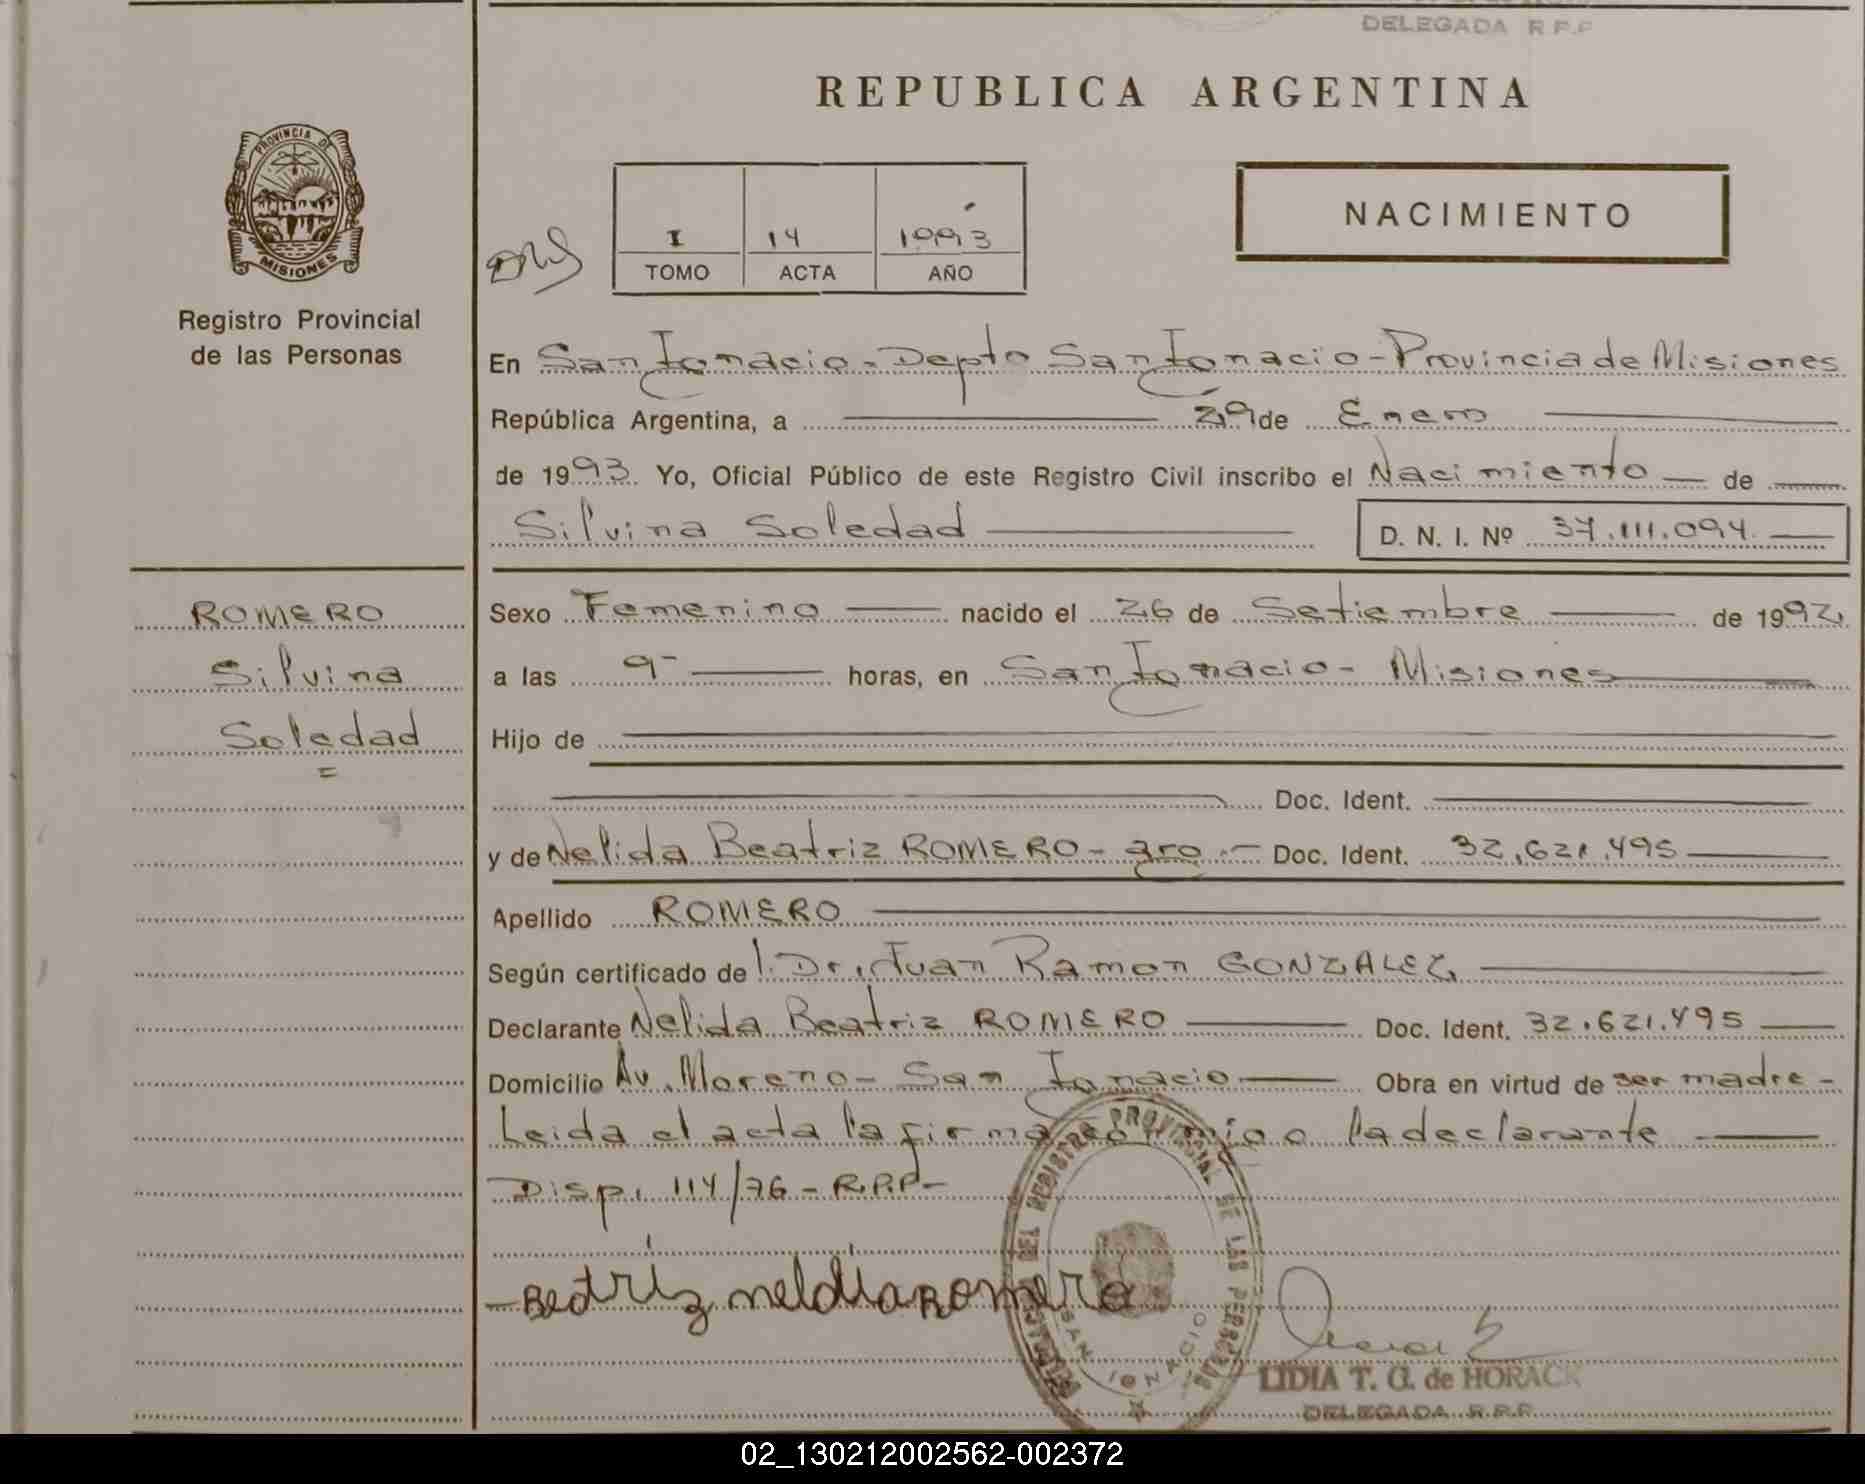 DELEGADA R.P.P
REPUBLICA ARGENTINA
PROVINCIA DE
MISIONES
Registro Provincial
de las Personas
I 14 1993
TOMO ACTA AÑO
NACIMIENTO
En San Ignacio - Depto San Ignacio - Provincia de Misiones
República Argentina, a 29 de Enero
de 1993. Yo, Oficial Público de este Registro Civil inscribo el Nacimiento de
Silvina Soledad D. N. I. Nº 37.111.094.
ROMERO
Silvina
Soledad
Sexo Femenino nacido el 26 de Setiembre de 1992
a las 9- horas, en San Ignacio - Misiones
Hijo de
Doc. Ident.
y de Nelida Beatriz ROMERO - arg.- Doc. Ident. 32.621.495
Apellido ROMERO
Según certificado de Dr. Juan Ramon GONZALEZ
Declarante Nelida Beatriz ROMERO Doc. Ident. 32.621.495
Domicilio Av. Moreno - San Ignacio Obra en virtud de ser madre -
Leida el acta la firma conmigo la declarante
Disp. 114/76 - R.P.P-
Beatriz neldia Romero
DEL REGISTRO PROVINCIAL DE LAS PERSONAS
SAN IGNACIO
LIDIA T. G. de HORACK
DELEGADA R.P.P.
02_130212002562-002372